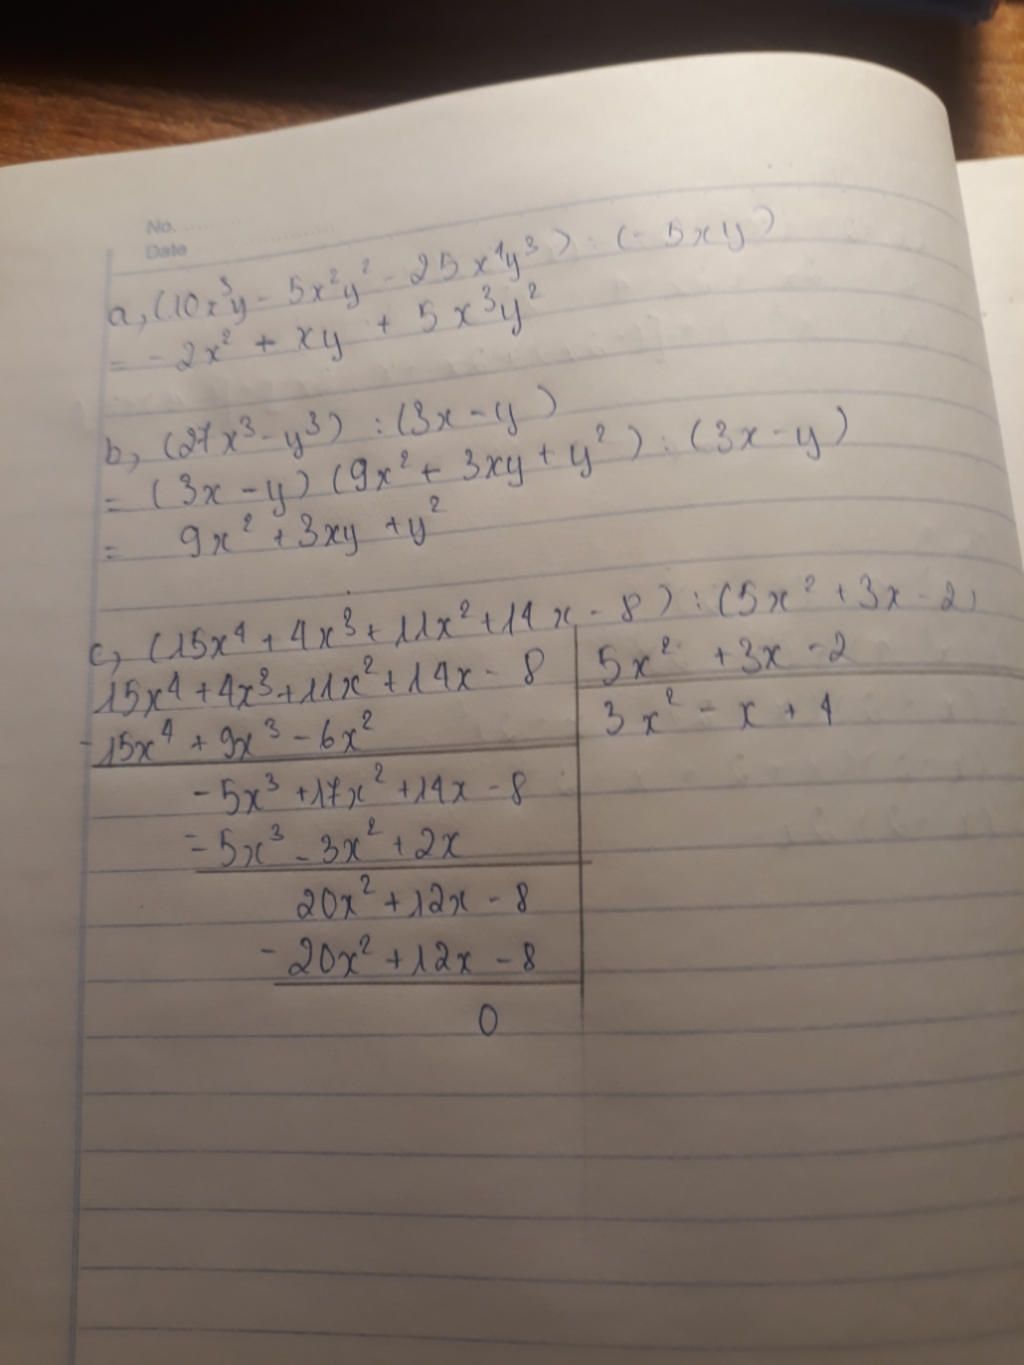 No. ......
Date ..................
a, (10x³y - 5x²y² - 25x⁴y³) : (-5xy)
= -2x² + xy + 5x³y²
b, (27x³ - y³) : (3x - y)
= (3x - y) (9x² + 3xy + y²) : (3x - y)
= 9x² + 3xy + y²
c, (15x⁴ + 4x³ + 11x² + 14x - 8) : (5x² + 3x - 2)
15x⁴ + 4x³ + 11x² + 14x - 8 | 5x² + 3x - 2
- 15x⁴ + 9x³ - 6x² | 3x² - x + 4
- 5x³ + 17x² + 14x - 8
- -5x³ - 3x² + 2x
20x² + 12x - 8
- 20x² + 12x - 8
0